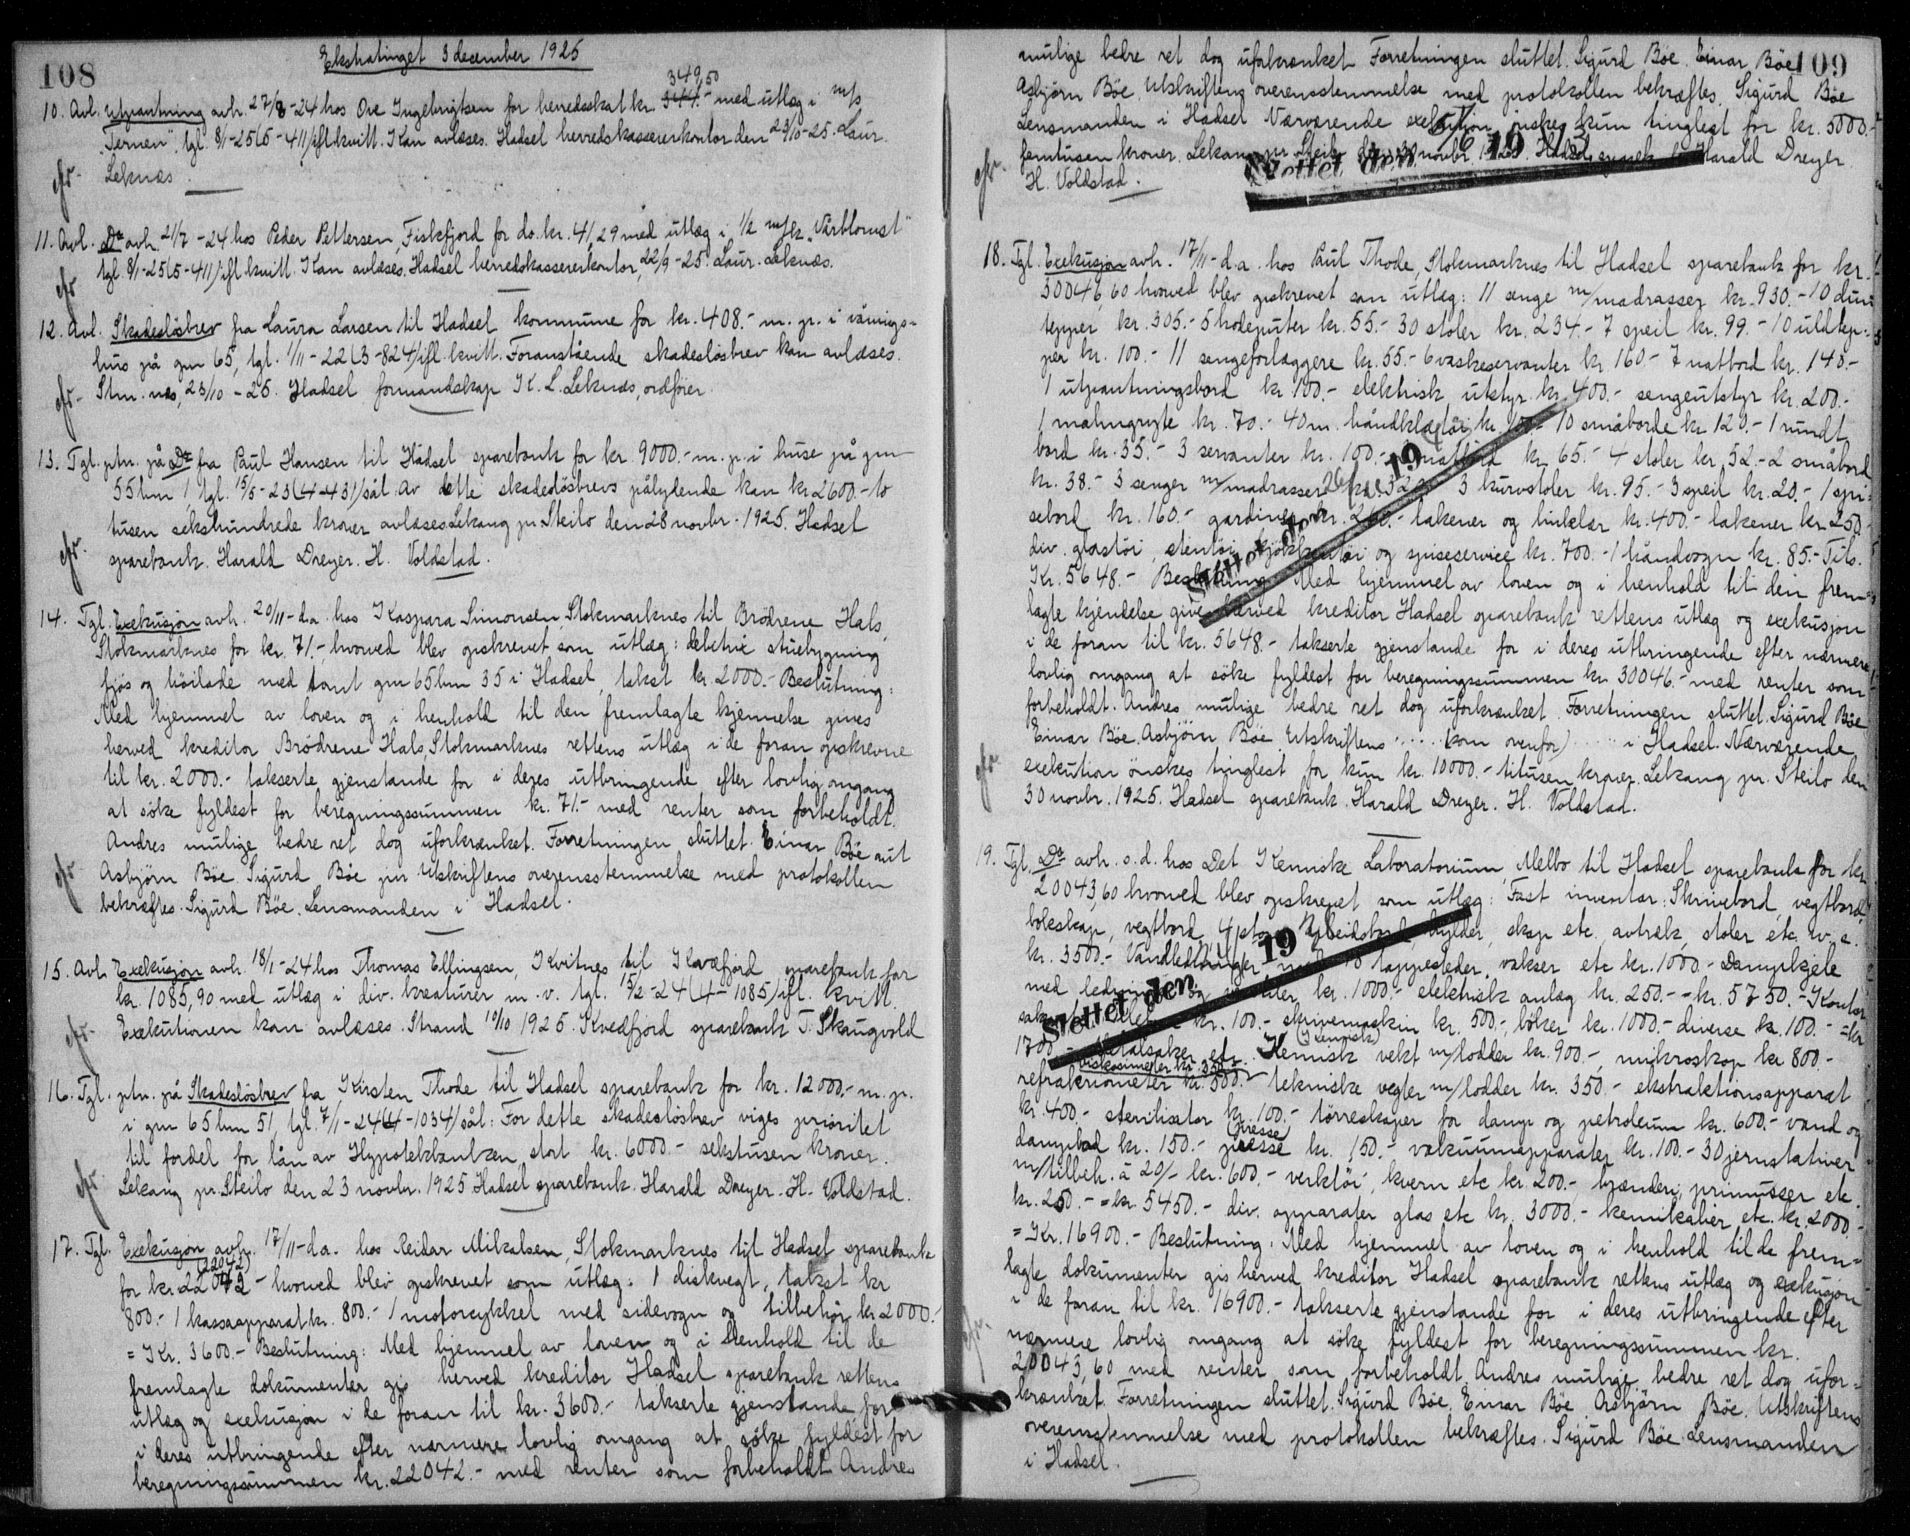 108
Ekstratinget 3 december 1925
349,50
10. Avl. Utpantning avh. 27/8-24 hos Ove Ingebrigtsen for herredsskat kr. 344.- med utlæg i m/s
"Ternen". tgl. 8/1-25(5-411)ifl. kvitt. Kan avlæses. Hadsel herredskassererkontor den 23/10-25. Laur.
Leknæs.
11. Avl. Do avh. 21/7-24 hos Peder Pettersen, Fiskfjord for do. kr. 41,29 med utlæg i 1/2 m/sk. "Vårblomst"
tgl. 8/1-25(5-411)ifl. kvitt. Kan avlæses. Hadsel herredskassererkontor, 22/9-25. Laur. Leknæs.
12. Avl. Skadesløsbrev fra Laura Larsen til Hadsel kommune for kr. 408.- m. p. i vånings-
hus på gm 65, tgl. 1/11-22(3-824)ifl. kvitt. Foranstående skadesløsbrev kan avlæses.
Stm. næs, 23/10-25. Hadsel formandskap K. L. Leknæs, ordfører.
13. Tgl. ptn. på Do fra Paul Hansen til Hadsel sparebank for kr 9000.- m. p. i huse på gm
55 bnr 1 tgl. 15/5-23(4-431)sål. Av dette skadesløsbrevs pålydende kan kr 2600.- to
tusen sekshundrede kroner avlæses Lekang pr. Steilo den 28 novbr. 1925. Hadsel
sparebank. Harald Dreyer. H. Voldstad.
14. Tgl. Exekusjon avh. 20/11-d.a. hos Kaspara Simonsen Stokmarknes til Brødrene Hals,
Stokmarknes for kr. 71.-, hvorved blev opskrevet som utlæg: debitrix stuebygning
fjøs og høilade med tomt gm 65 bnr 35 i Hadsel, takst kr. 2000.- Beslutning:
Med hjemmel av loven og i henhold til den fremlagte kjennelse gives
herved kreditor Brødrene Hals Stokmarknes rettens utlæg i de foran opskrevne
til kr. 2000.- takserte gjenstande for i deres utbringende efter lovlig omgang
at søke fyldest for beregningssummen kr. 71.- med renter som forbeholdt.
Andres mulige bedre ret dog uforkrænket. Forretningen sluttet. Einar Bøe aut
Asbjørn Bøe Sigurd Bøe Utskriftens overensstemmelse med protokollen
bekræftes. Sigurd Bøe. Lensmanden i Hadsel.
15. Avl. Exekusjon avh. 18/1-24 hos Thomas Ellingsen, Kvitnes til Kvæfjord sparebank for
kr. 1085,90 med utlæg i div. kreaturer m. v. tgl. 15/2-24(4-1085)ifl. kvitt.
Exekutionen kan avlæses. Strand 10/10 1925. Kvedfjord sparebank T. Skaugvold
16. Tgl. ptn. på Skadesløsbrev fra Kirsten Thode til Hadsel sparebank for kr. 12000.- m. p.
i gm 65 bnr 51, tgl. 7/1-24(4-1034)sål: For dette skadesløsbrev viges prioritet
til fordel for lån av Hypotekbanken stort kr. 6000.- sekstusen kroner.
Lekang pr. Steilo den 23 novbr. 1925 Hadsel sparebank. Harald Dreyer. H. Voldstad.
17. Tgl. Exekusjon avh. 17/11-d.a. hos Reidar Mikalsen, Stokmarknes til Hadsel sparebank
(22042)
for kr. 22042.- hvorved blev opskrevet som utlæg: 1 diskvegt, takst kr
800.- 1 kassaapparat kr. 800.- 1 motorcykkel med sidevogn og tilbehør kr 2000.-
= Kr. 3600.- Beslutning: Med hjemmel av loven og i henhold til de
fremlagte dokumenter gis herved kreditor Hadsel sparebank rettens
utlæg og exekusjon i de foran til kr. 3600.- takserte gjenstande for
i deres utbringende efter nærmere lovlig omgang at søke fyldest for
beregningssummen kr. 22042.- med renter som forbeholdt Andres
109
mulige bedre ret dog uforkrænket Forretningen sluttet. Sigurd Bøe. Einar Bøe
Asbjørn Bøe. Utskriftens overensstemmelse med protokollen bekræftes. Sigurd Bøe
Lensmanden i Hadsel Nærværende exekution ønskes kun tinglest for kr. 5000.-
femtusen kroner. Lekang pr. Steilo novbr. Harald Dreyer
H. Voldstad.
Slettet den 19
18. Tgl. Exekusjon avh. 17/11-d.a. hos Paul Thode, Stokmarknes til Hadsel sparebank for kr.
30046,60 hvorved blev opskrevet som utlæg: 11 senge m/madrasser kr. 930.- 10 dun-
tepper kr. 305.- 5 hodeputer kr. 55.- 30 stoler kr. 234.- 7 speil kr. 99.- 10 uldtep-
per kr. 100.- 11 sengeforlæggere kr. 55.- 6 vaskeservanter kr. 160.- 7 natbord kr. 145.-
1 utpantningsbord kr. 100.- elektrisk utstyr kr. 400.- sengeutstyr kr. 200.-
1 malmgryte kr. 70.- 40 m. håndklætøi kr. 10 småborde kr. 120.- 1 rundt
bord kr. 35.- 3 servanter kr. 100.- natbord kr. 65.- 4 stoler kr. 52.- 2 småbord
kr. 38.- 3 senger m/madrasser 3 kurvstoler kr. 95.- 3 speil kr. 20.- 1 spi-
sebord kr. 160.- gardiner kr. lakener og linklær kr. 400.- lakener kr. 250.-
div. glastøi, stentøi, og spiseservice kr. 700.- 1 håndvogn kr. 85.- Tils.
Kr. 5648.- Beslutning Med hjemmel av loven og i henhold til den frem-
lagte kjendelse gives herved kreditor Hadsel sparebank rettens utlæg og exekusjon
i de foran til kr. 5648.- takserte gjenstande for i deres utbringende efter nærmere
lovlig omgang at søke fyldest for beregningssummen kr. 30046.- med renter som
forbeholdt. Andres mulige bedre ret dog uforkrænket. Forretningen sluttet. Sigurd Bøe
Einar Bøe. Asbjørn Bøe Utskriftens ..... (som ovenfor) ..... i Hadsel. Nærværende
exekution ønskes tinglest for kun kr. 10000.- titusen kroner. Lekang pr. Steilo den
30 novbr. 1925. Hadsel sparebank. Harald Dreyer. H. Voldstad.
Slettet den 19
19. Tgl. Do avh. s.d. hos Det Kemiske Laboratorium, Melbo til Hadsel sparebank for kr
20043,60 hvorved blev opskrevet som utlæg: Fast inventar: Skrivebord, vegtbord,
bokskap, vegtbord, arbeidsbord, hylder, skap etc, avtræk, stoler etc. m. v.
kr. 3500.- Vandledninger tappesteder, vakser etc kr. 1000.- Dampkjele
med ledninger og kr. 1000.- elektrisk anlæg kr. 250.- = kr. 5750.- Kontor
saker kr. 100.- skrivemaskin kr. 500.- bøker kr. 1000.- diverse kr. 100.- = kr
(Kemisk)
1700.- etc. Kemisk vekt m/lodder kr. 900.-, mikroskop kr 800.-
viskosimeter kr. 350.-
refraktiometer kr. 500.- tekniske vegter m/lodder kr. 350.- ekstraktionsapparat
kr. 400.- sterilisator kr. 100.- tørreskaper for damp og petroleum kr. 600.- vand og
(presse)
dampbad kr. 150.- presse kr. 150.- vakuumapparater kr. 100.- 30 jernstativer
m/tilbeh. à 20/- kr. 600.- verktøi, kvern etc kr. 200.- brændere, primusser etc.
kr. 250.- = kr. 5450.- div. apparater glas etc kr. 3000.- kemikalier etc. kr. 2000.-
= Kr. 16900.- Beslutning: Med hjemmel av loven og i henhold til de frem-
lagte dokumenter gis herved kreditor Hadsel sparebank rettens utlæg og exekusjon
i de foran til kr. 16900.- takserte gjenstande for i deres utbringende efter
nærmere lovlig omgang at søke fyldest for beregningssummen kr.
20043,60 med renter som forbeholdt. Andres mulige bedre ret dog ufor-
krænket. Forretningen sluttet. Sigurd Bøe. Einar Bøe Asbjørn Bøe. Utskriftens
overensstemmelse med protokollen bekræftes. Sigurd Bøe Lensmanden
i Hadsel.
Slettet den 19